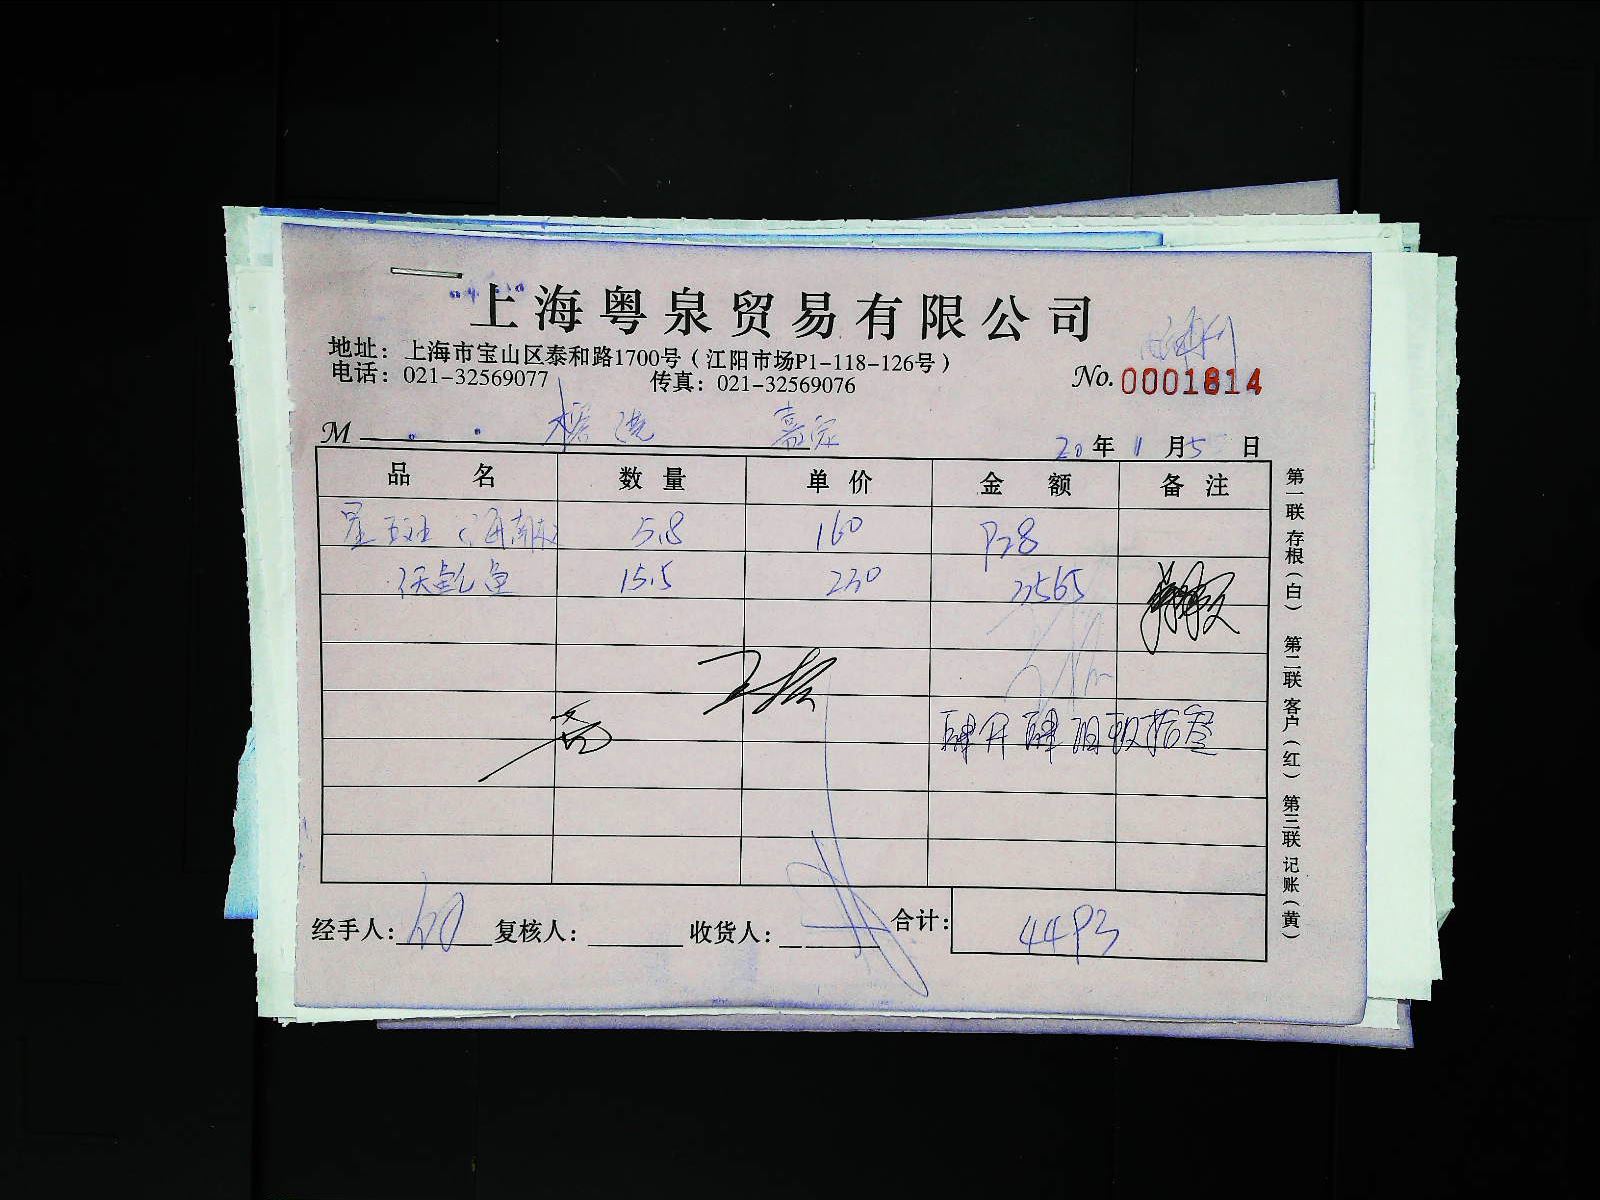 上海粤泉贸易有限公司
地址：上海市宝山区泰和路1700号（江阳市场P1-118-126号）
电话：021-32569077 传真：021-32569076
No. 0001814
M 嘉定
20年11月5日
品名 数量 单价 金额 备注
星斑（海南 5.8 160 928
鱼 15.5 230 3565
肆仟肆佰玖拾叁
经手人： 复核人： 收货人： 合计： 4493
第一联存根（白） 第二联客户（红） 第三联记账（黄）